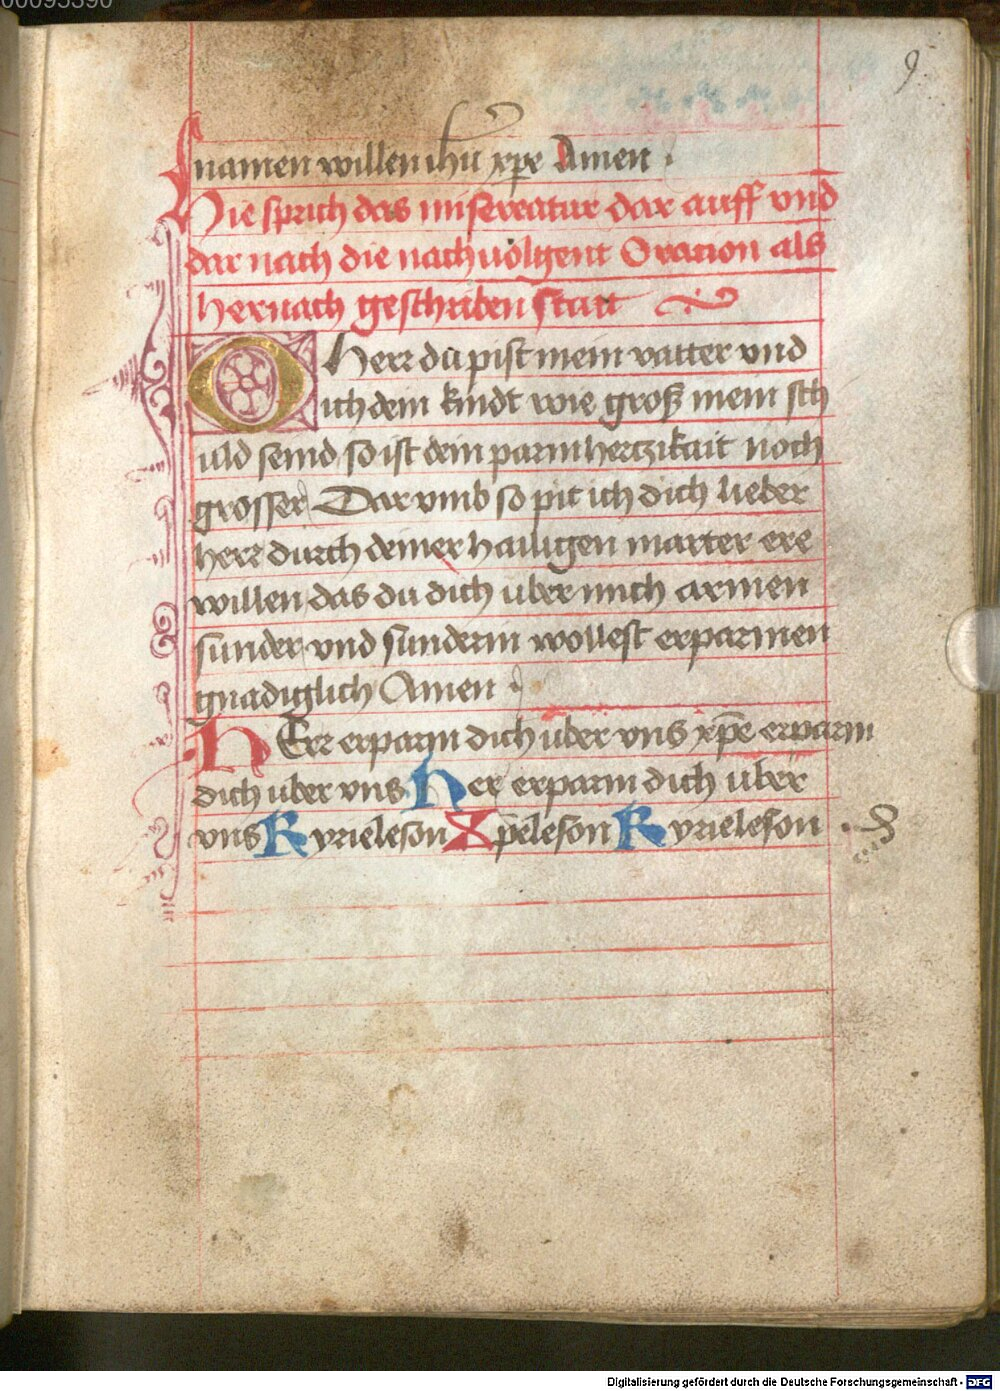 00095390
9
namen willen ihu xpe Amen
Hie sprich das misereatur dar auff vnd
dar nach die nachuolgent Oracion als
hernach geschriben statt
O Herr du pist mein vatter vnd
ich dein kindt wie groß mein sch
uld seind so ist dein parmhertzikait noch
grosser Dar vmb so pit ich dich lieber
herr durch deiner hailigen marter ere
willen das du dich uber mich armen
sunder vnd sunderin wollest erparmen
gnadiglich Amen
HErr erparm dich uber vns xp̄e erparm
dich uber vns Her erparm dich uber
vns Kyrieleson Xp̄eleson Kyrieleson
Digitalisierung gefördert durch die Deutsche Forschungsgemeinschaft - DFG